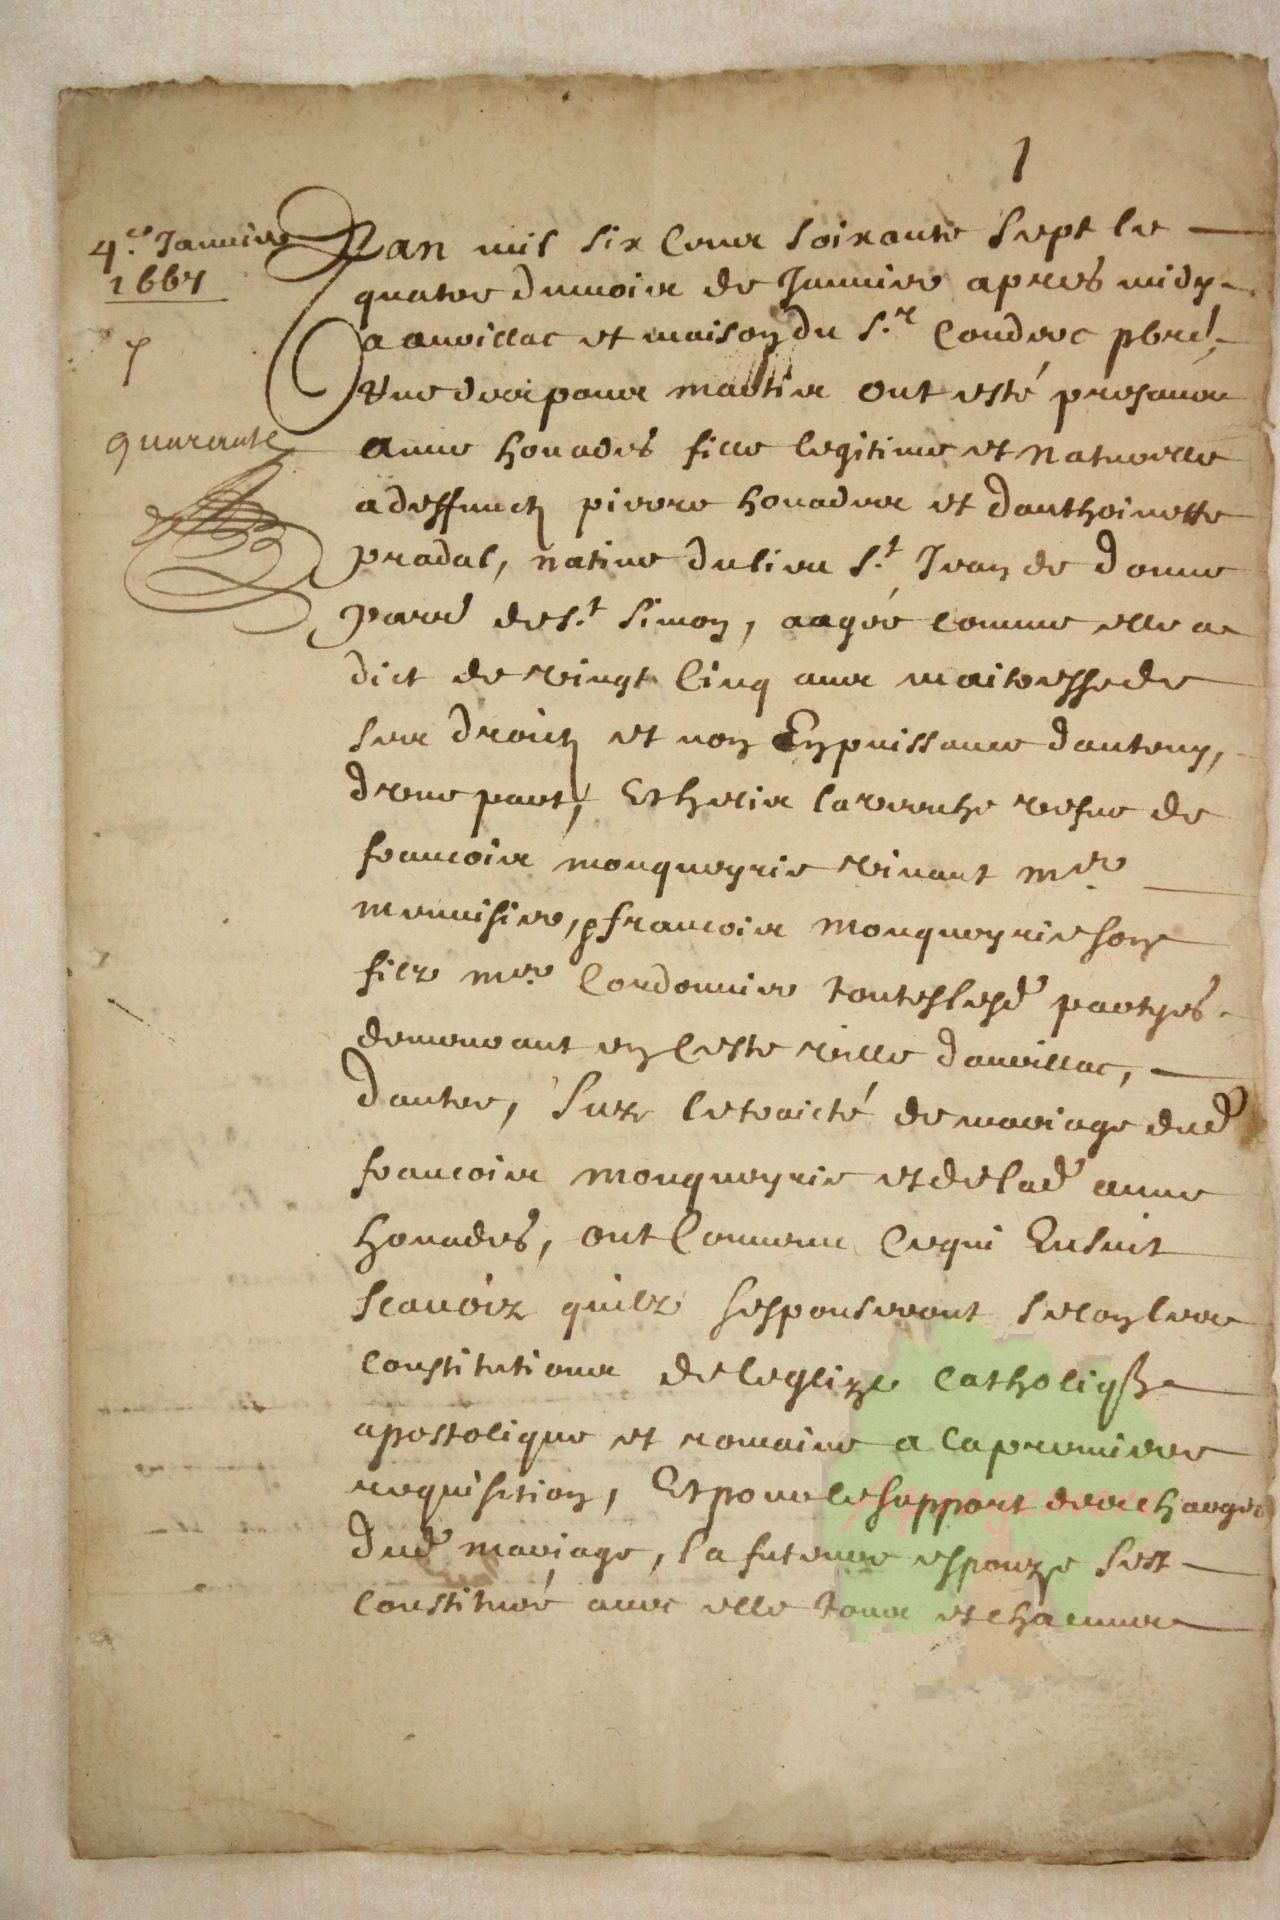 1
4.e Januier
1667
Lan mil six cens soixante sept le
quatre du mois de Januier apres midy
a auuillar et maison du s.r Couderc pbre
rue des ont esté presans
anne houades fille legitime et naturelle
a deffunct pierre houades et danthoinette
pradal, natiue du lieu s.t Jean de
de s.t simon, aagée comme elle a
dict de vingt cinq ans maitresse de
ses droictz et non en puissance dautruy,
dvne part, Et vefue de
francois mouqueyrie viuant m.re
menuisier, & francois mouqueyrie son
filz m.re Cordonnier toutes lesd partyes
demeurant en ceste ville dauuillar,
dautre, Surz le traicté de mariage dud
francois mouqueyrie et de lad anne
houades, ont conuenu ce qui Ensuit
scauoir quilz sespouseront selon les
constitutions de leglize catholiq
apostolique et romaine a la premiere
requisition, Et pour le support des charges
dud mariage, la future espouze sest
constitué auec elle tous et chacuns
quarante